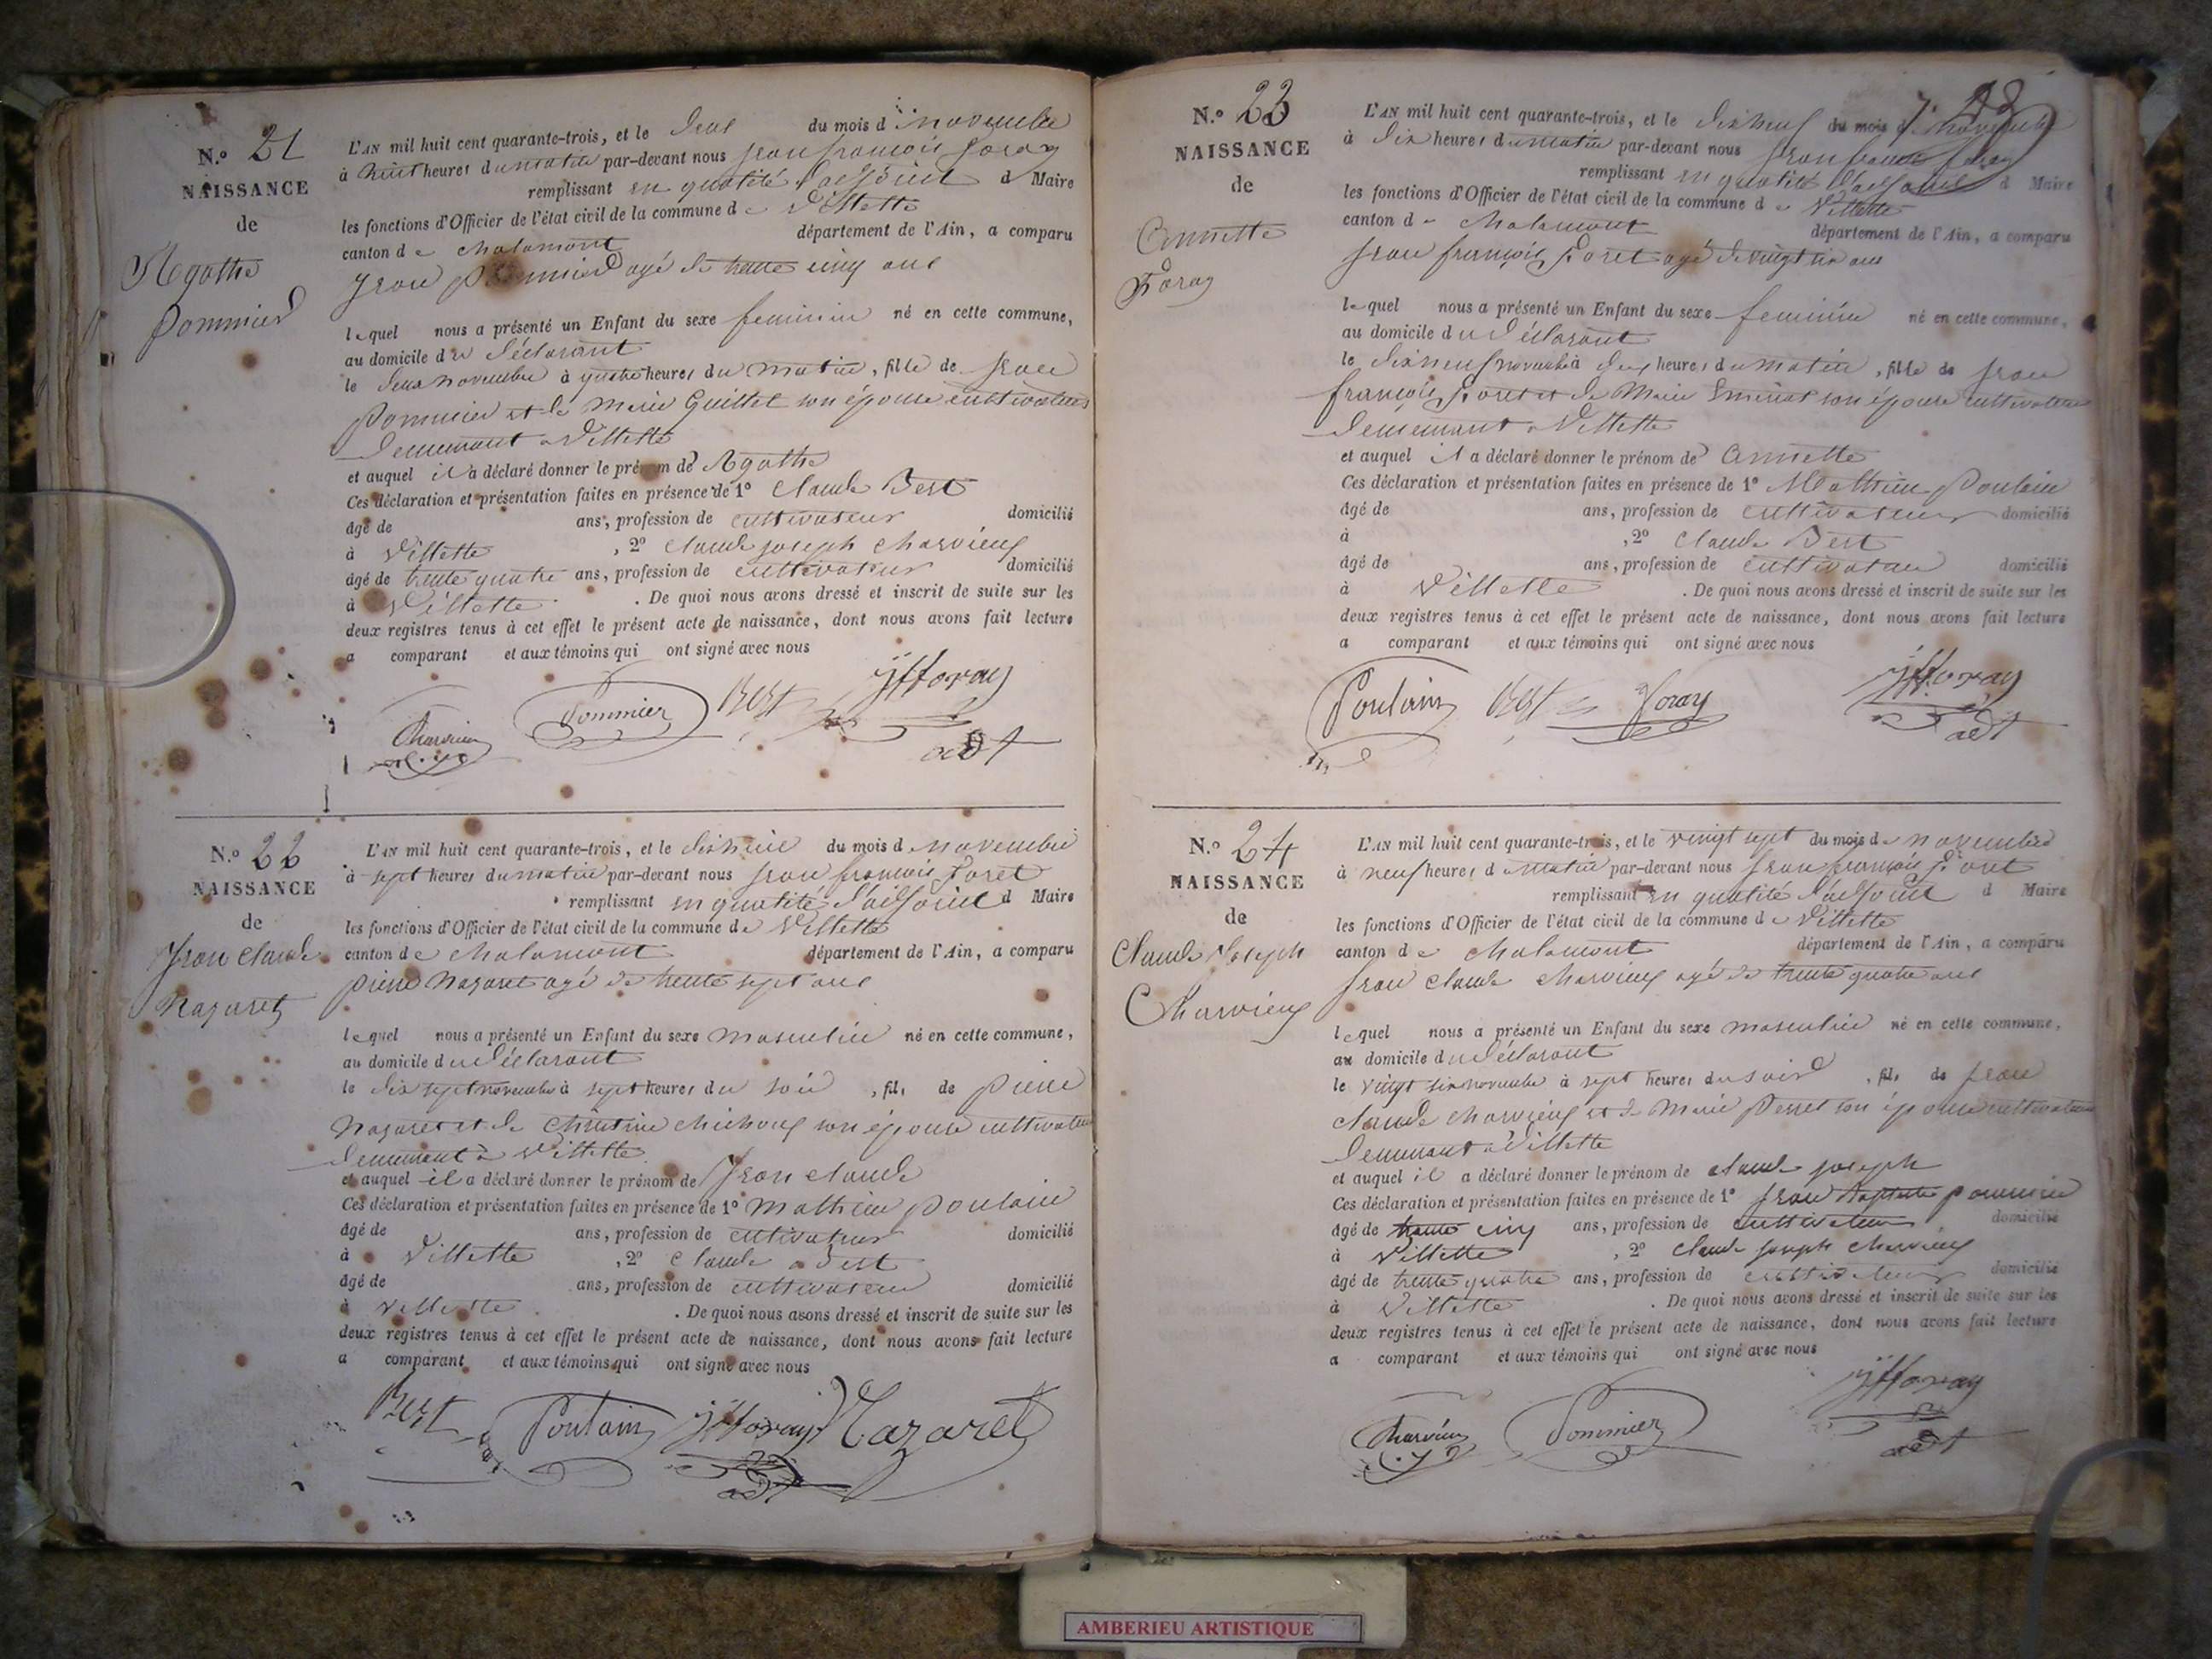 N.° 21
NAISSANCE
de
Agathe
Pommier
L'AN mil huit cent quarante-trois, et le deux du mois d novembre
à huit heures du matin par-devant nous jean françois foray
remplissant en qualité d'adjoint d Maire
les fonctions d'Officier de l'état civil de la commune de Villette
canton de chalamont département de l'Ain, a comparu
jean Pommier agé de trente cinq ans
lequel nous a présenté un Enfant du sexe feminin né en cette commune,
au domicile du déclarant
le deux novembre à quatre heures du matin, fille de jean
Pommier et de Marie Guillet son épouse cultivateurs
demeurant a Villette
et auquel il a déclaré donner le prénom de Agathe
Ces déclaration et présentation faites en présence de 1° Claude Best
âgé de ans, profession de cultivateur domicilié
à Villette, 2° claude joseph charvieux
âgé de trente quatre ans, profession de cultivateur domicilié
à Villette. De quoi nous avons dressé et inscrit de suite sur les
deux registres tenus à cet effet le présent acte de naissance, dont nous avons fait lecture
a comparant et aux témoins qui ont signé avec nous
Charvieux Pommier Best jfforay
adt
N.° 22
NAISSANCE
de
Jean claude
Nazaret
L'AN mil huit cent quarante-trois, et le dix huit du mois d novembre
à sept heures du matin par-devant nous jean françois foret
remplissant en qualité d'adjoint d Maire
les fonctions d'Officier de l'état civil de la commune de Villette
canton de chalamont département de l'Ain, a comparu
pierre Nazaret agé de trente sept ans
lequel nous a présenté un Enfant du sexe masculin né en cette commune,
au domicile du déclarant
le dix sept novembre à sept heures du soir, fils de pierre
Nazaret et de Christine michoux son épouse cultivateurs
demeurant à Villette
et auquel il a déclaré donner le prénom de Jean claude
Ces déclaration et présentation faites en présence de 1° Mathieu poulain
âgé de ans, profession de cultivateur domicilié
à Villette, 2° Claude Best
âgé de ans, profession de cultivateur domicilié
à Villette. De quoi nous avons dressé et inscrit de suite sur les
deux registres tenus à cet effet le présent acte de naissance, dont nous avons fait lecture
a comparant et aux témoins qui ont signé avec nous
Best Poulain jfforay Nazaret
adt
N.° 23
NAISSANCE
de
Annette
Foray
L'AN mil huit cent quarante-trois, et le dix neuf du mois de novembre
à dix heures du matin par-devant nous jean françois foray
remplissant en qualité d'adjoint d Maire
les fonctions d'Officier de l'état civil de la commune de Villette
canton de chalamont département de l'Ain, a comparu
jean françois foret agé de vingt six ans
lequel nous a présenté un Enfant du sexe feminin né en cette commune,
au domicile du déclarant
le dix neuf novembre à deux heures du matin, fille de jean
françois foret et de Marie son épouse cultivateurs
demeurant a Villette
et auquel il a déclaré donner le prénom de Annette
Ces déclaration et présentation faites en présence de 1° Mathieu Poulain
âgé de ans, profession de cultivateur domicilié
à , 2° Claude Best
âgé de ans, profession de cultivateur domicilié
à Villette. De quoi nous avons dressé et inscrit de suite sur les
deux registres tenus à cet effet le présent acte de naissance, dont nous avons fait lecture
a comparant et aux témoins qui ont signé avec nous
Poulain Best foray jfforay
adt
N.° 24
NAISSANCE
de
Claude Joseph
Charvieux
L'AN mil huit cent quarante-trois, et le vingt sept du mois de novembre
à neuf heures d matin par-devant nous jean françois foret
remplissant en qualité d'adjoint d Maire
les fonctions d'Officier de l'état civil de la commune de Villette
canton de chalamont département de l'Ain, a comparu
jean claude charvieux agé de trente quatre ans
lequel nous a présenté un Enfant du sexe masculin né en cette commune,
au domicile du déclarant
le vingt six novembre à sept heures du soir, fils de jean
claude charvieux et de Marie Perret son épouse cultivateurs
demeurant à Villette
et auquel il a déclaré donner le prénom de claude joseph
Ces déclaration et présentation faites en présence de 1° jean Baptiste pommier
âgé de trente cinq ans, profession de cultivateur domicilié
à Villette, 2° claude joseph charvieux
âgé de trente quatre ans, profession de cultivateur domicilié
à Villette. De quoi nous avons dressé et inscrit de suite sur les
deux registres tenus à cet effet le présent acte de naissance, dont nous avons fait lecture
a comparant et aux témoins qui ont signé avec nous
Charvieux Pommier jfforay
adt
AMBERIEU ARTISTIQUE